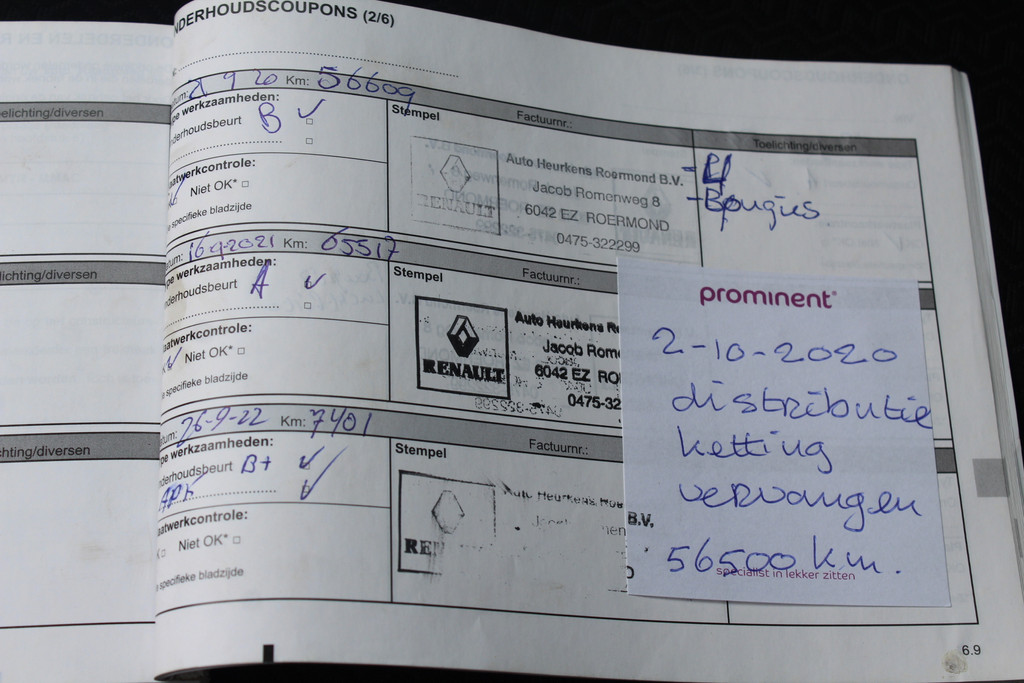 NDERHOUDSCOUPONS (2/6)
elichting/diversen
lichting/diversen
chting/diversen
tum: 2 9 20 Km: 56609
pe werkzaamheden:
nderhoudsbeurt B ✓
aatwerkcontrole:
Niet OK*
e specifieke bladzijde
Stempel
Factuurnr.:
RENAULT
Auto Heurkens Roermond B.V.
Jacob Romenweg 8
6042 EZ ROERMOND
0475-322299
Toelichting/diversen
- Bougies
tum: 16-9-2021 Km: 65517
pe werkzaamheden:
nderhoudsbeurt A ✓
aatwerkcontrole:
Niet OK*
e specifieke bladzijde
Stempel
Factuurnr.:
RENAULT
Auto Heurkens Ro
Jacob Rome
6042 EZ RO
0475-32
tum: 26-9-22 Km: 7401
pe werkzaamheden:
nderhoudsbeurt B+ ✓
APK ✓
aatwerkcontrole:
Niet OK*
e specifieke bladzijde
Stempel
Factuurnr.:
REN
Auto Heurkens Roe
B.V.
prominent
2-10-2020
distributie
ketting
vervangen
56500 km.
specialist in lekker zitten
6.9